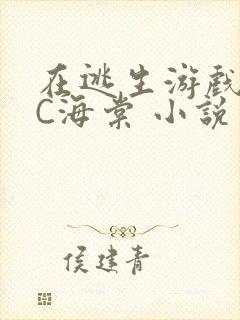 在逃生游戏
C海棠 小说
侯建青